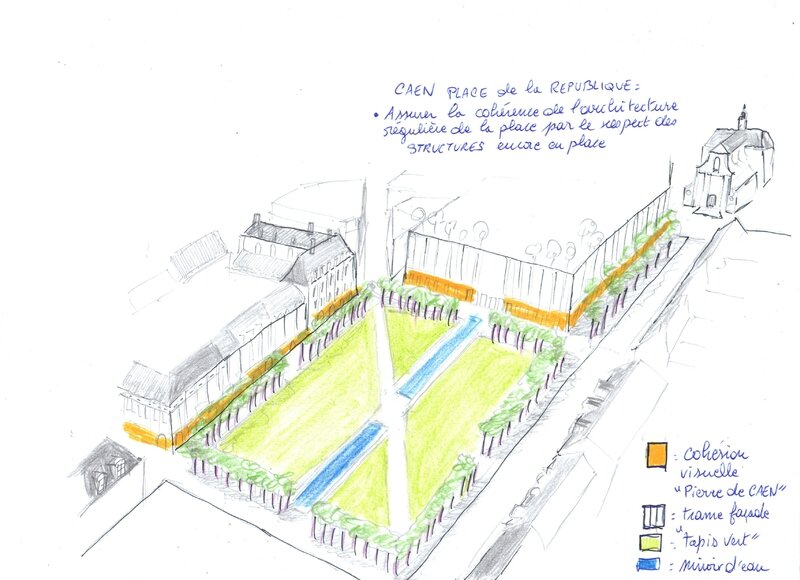 CAEN PLACE de la REPUBLIQUE:
• Assurer la cohérence de l'architecture
régulière de la place par le respect des
STRUCTURES encore en place
: cohésion
visuelle
"Pierre de CAEN"
: trame façade
: "Tapis vert"
: miroir d'eau